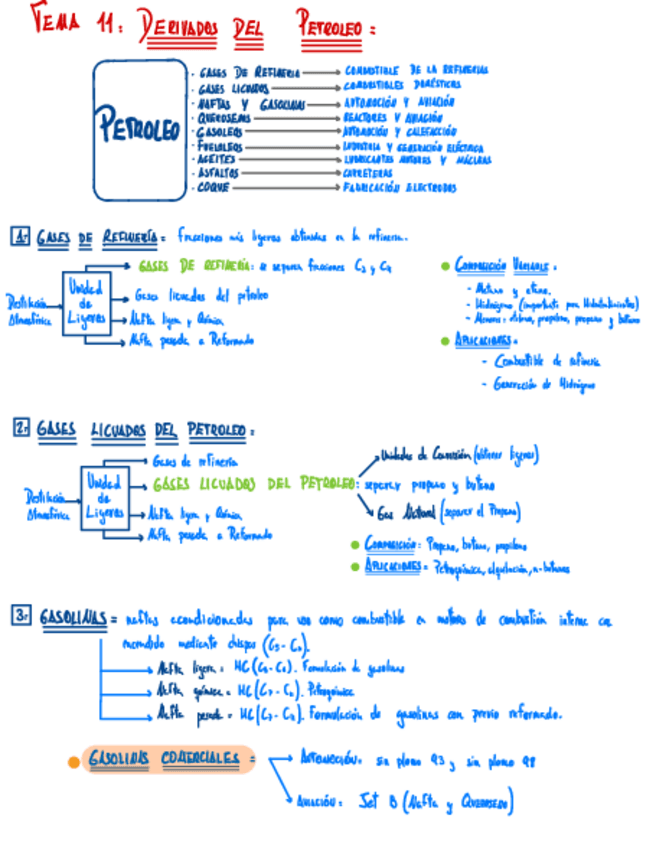 TEMA 11: DERIVADOS DEL PETROLEO:
PETROLEO
· GASES DE REFINERIA → COMBUSTIBLE DE LA REFINERIAS
· GASES LICUADOS → COMBUSTIBLES DOMÉSTICOS
· NAFTAS Y GASOLINAS → AUTOMOCIÓN Y AVIACIÓN
· QUEROSENOS → REACTORES Y AVIACIÓN
· GASOLEOS → AUTOMOCIÓN Y CALEFACCIÓN
· FUELOLEOS → INDUSTRIA Y GENERACIÓN ELÉCTRICA
· ACEITES → LUBRICANTES MOTORES Y
· ASFALTOS → CARRETERAS
· COQUE → FABRICACIÓN ELECTRODOS
1: GASES DE REFINERÍA: fracciones más ligeras obtenidas en la refinería.
Destilación Atmosférica
Unidad de Ligeros
GASES DE REFINERÍA: se separa fracciones C3 y C4
Gases licuados del petróleo
Nafta ligera y Química
Nafta pesada a Reformado
COMPOSICIÓN VARIABLE:
- Metano y etano.
- Hidrógeno (importante para Hidrotratamientos)
- Menores: etileno, propileno, propano y butano
APLICACIONES:
- Combustible de refinería
- Generación de Hidrógeno
2: GASES LICUADOS DEL PETROLEO:
Destilación Atmosférica
Unidad de Ligeros
Gases de refinería
GASES LICUADOS DEL PETROLEO: separar propano y butano
Nafta ligera y Química
Nafta pesada a Reformado
Unidades de Conversión (obtener ligeros)
Gas Natural (separar el Propano)
COMPOSICIÓN: Propano, butano, propileno
APLICACIONES: Petroquímica, alquilación, n-butanos
3: GASOLINAS = naftas acondicionadas para uso como combustible en motores de combustión interna con
encendido mediante chispa
Nafta ligera = HC Formulación de gasolinas
Nafta química = HC Petroquímica
Nafta pesada = HC Formulación de gasolinas con previo reformado.
GASOLINAS COMERCIALES =
AUTOMOCIÓN: sin plomo 93 y sin plomo 98
AVIACIÓN: Jet B (Nafta y QUEROSENO)